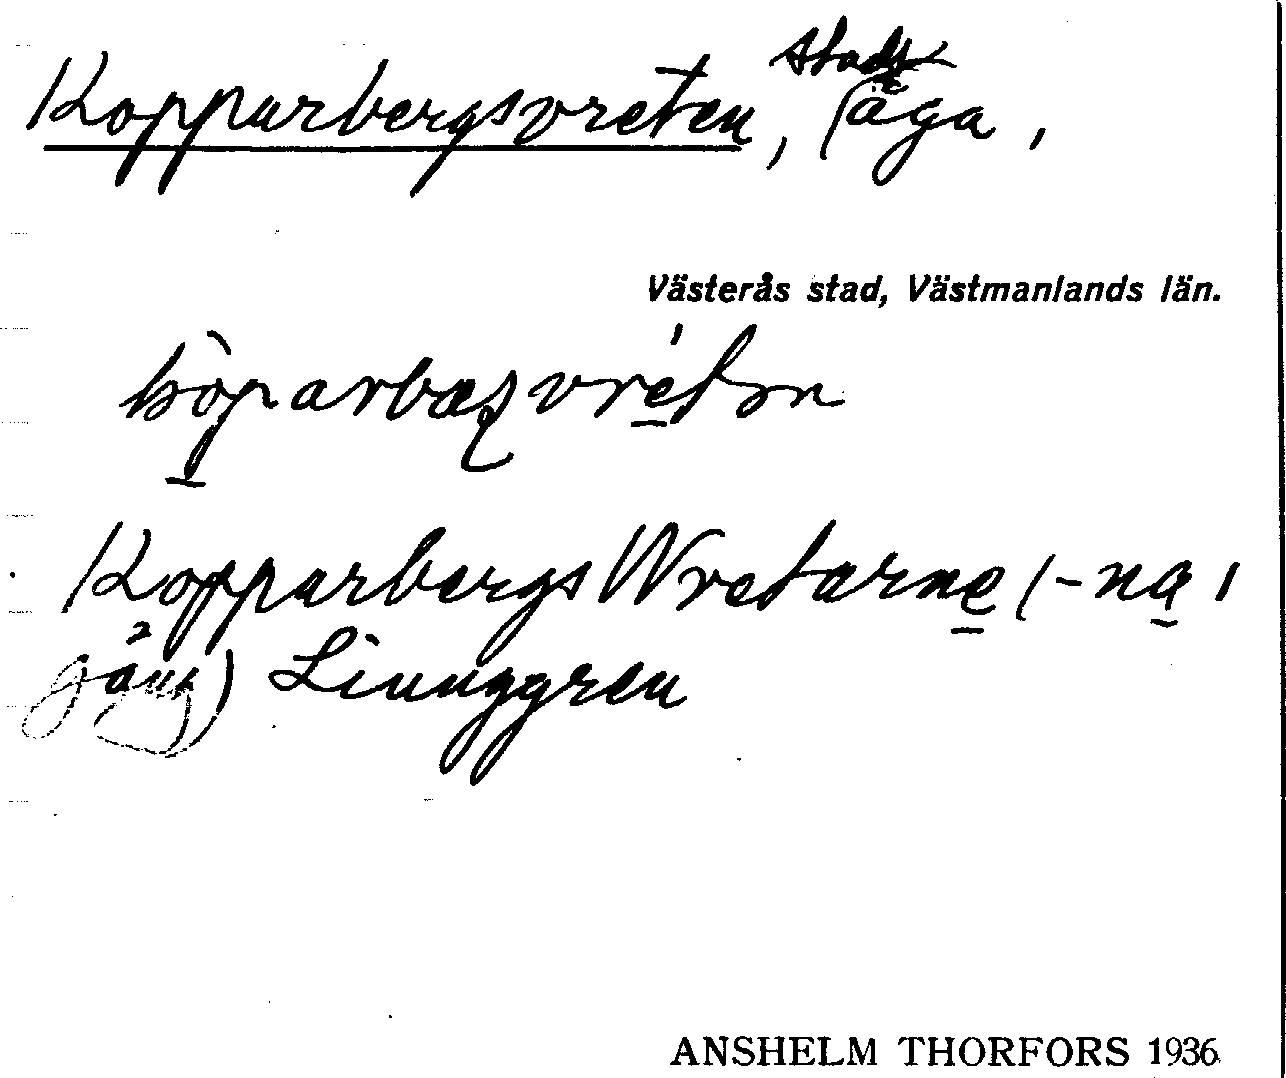 Kopparbergsvreten, stads äga,
Västerås stad, Västmanlands län.
Kopparbergs Wretarne (-na 1
gång) Liunggren
ANSHELM THORFORS 1936